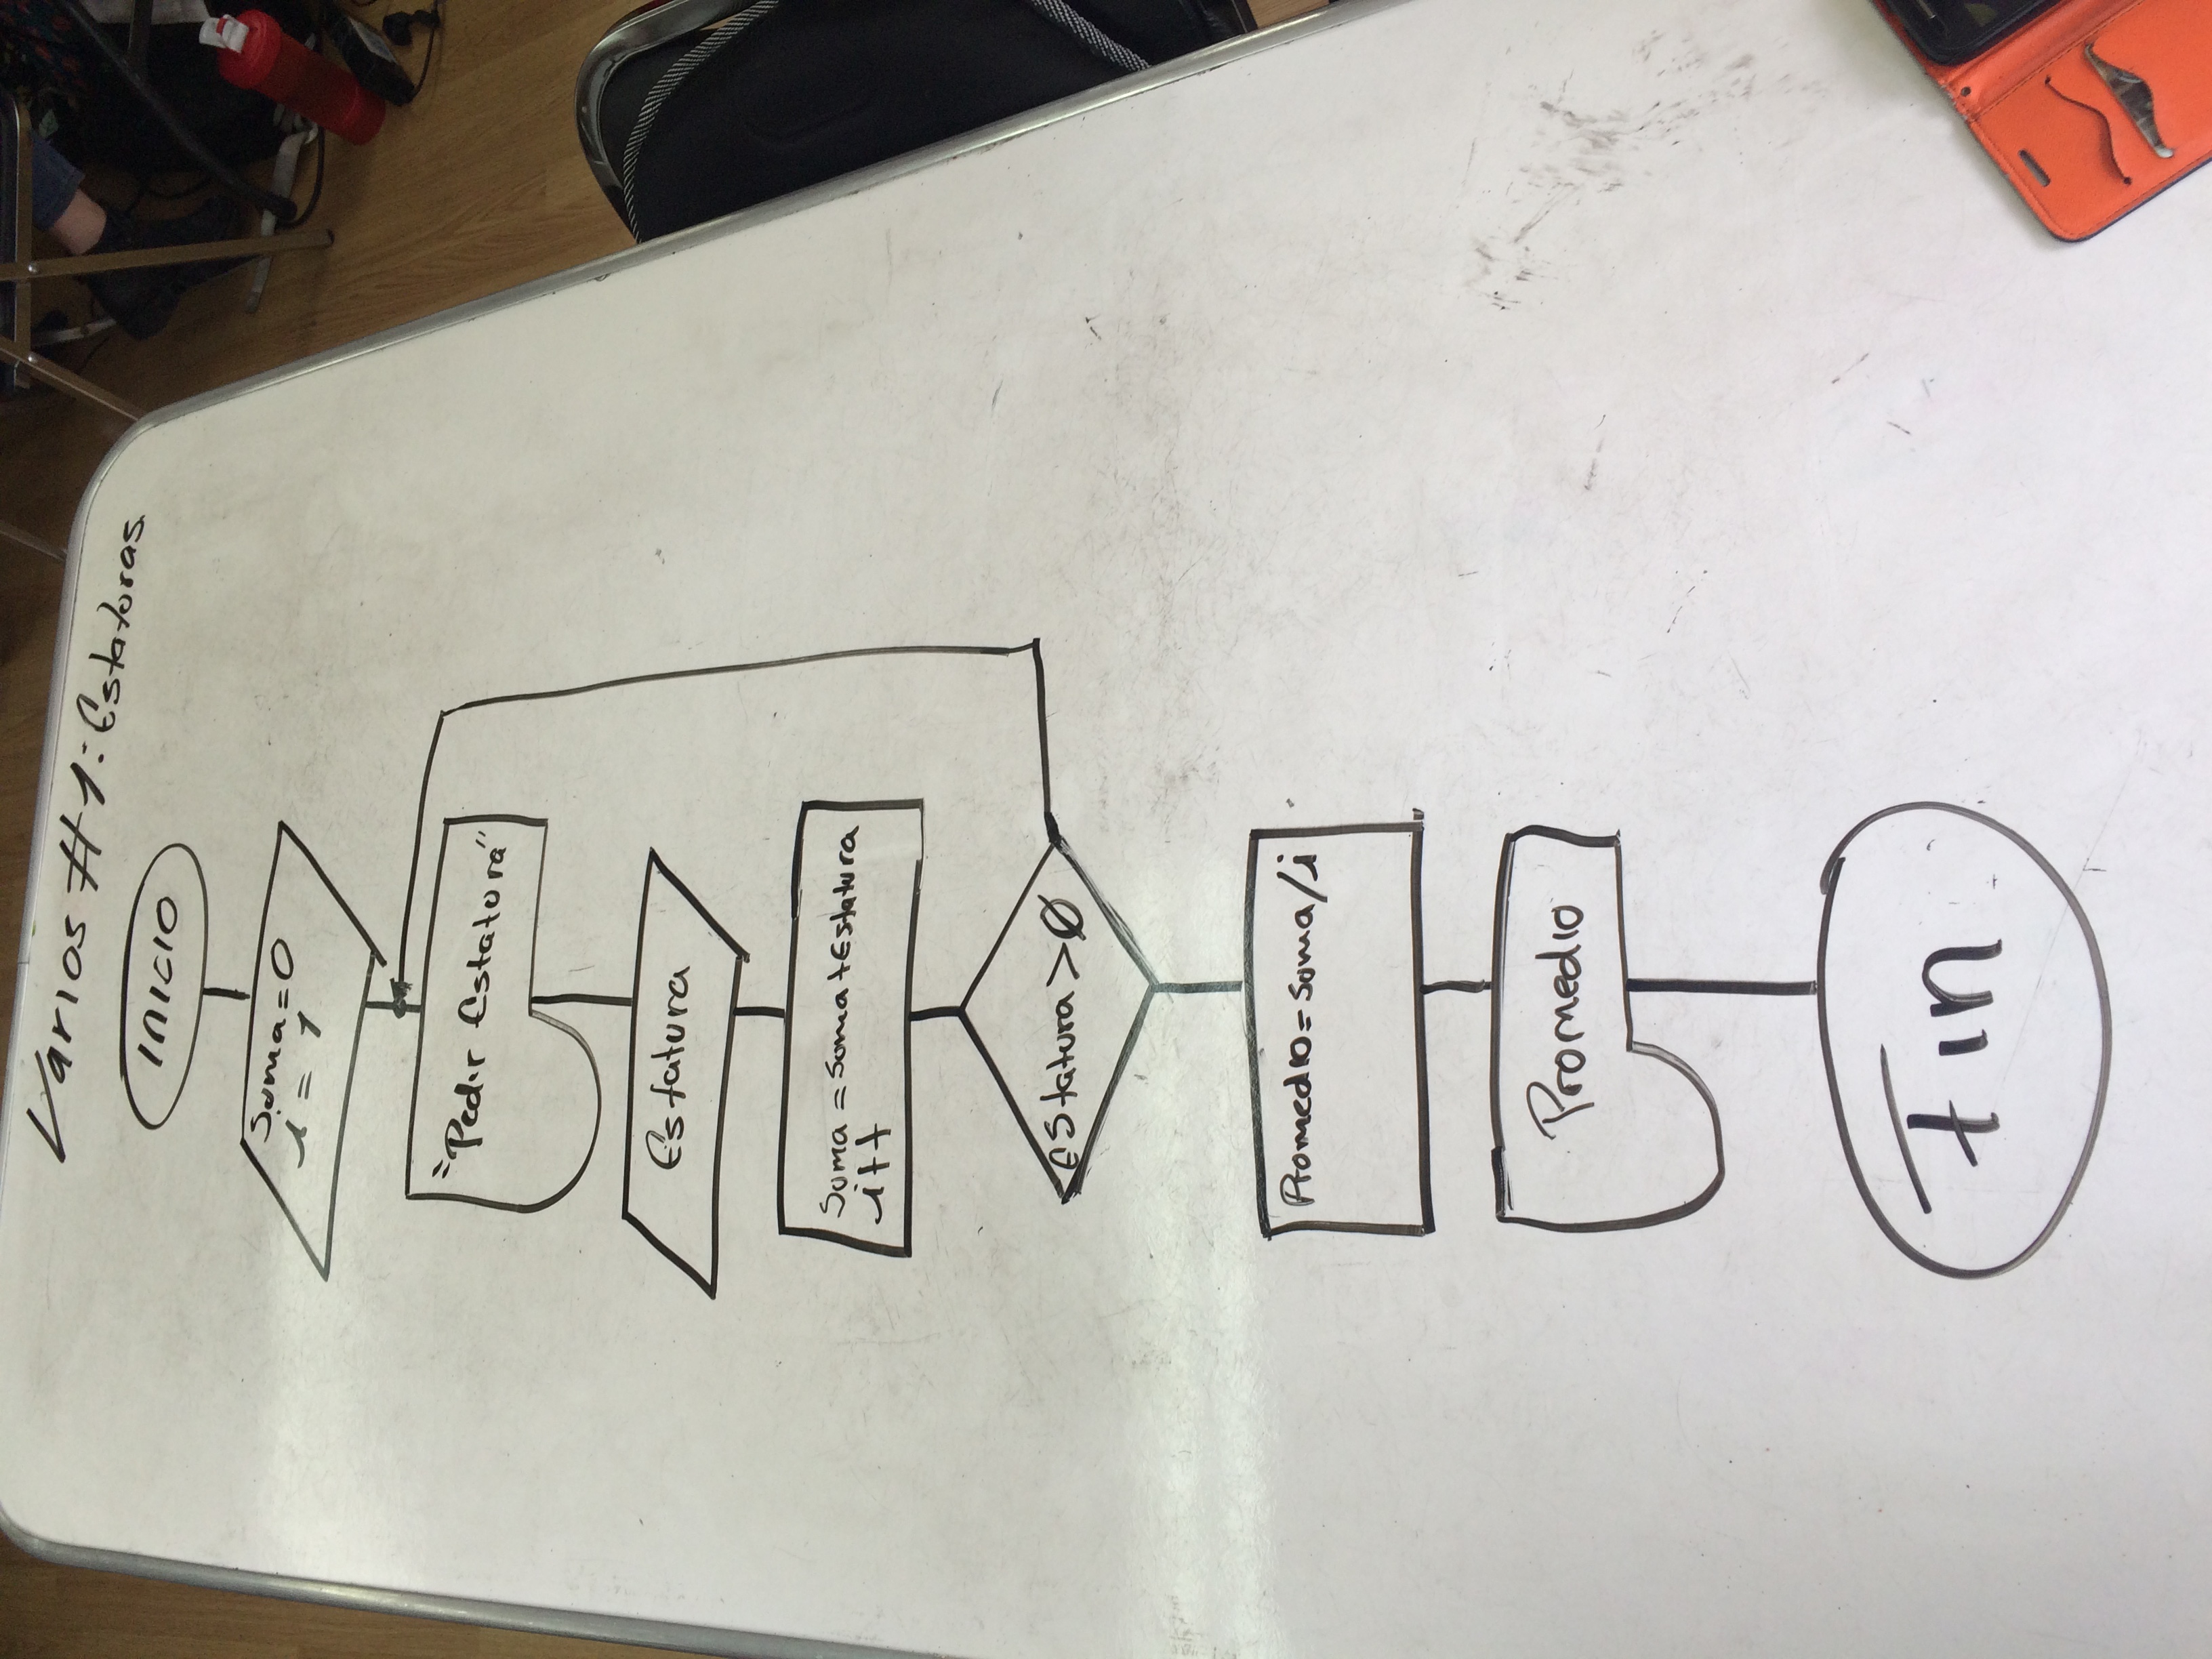 Varios #1: Estaturas
Inicio
Suma=0
i = 1
"Pedir Estatura"
Estatura
Suma = Suma + Estatura
i++
Estatura > 0
Promedio = suma/i
Promedio
Fin